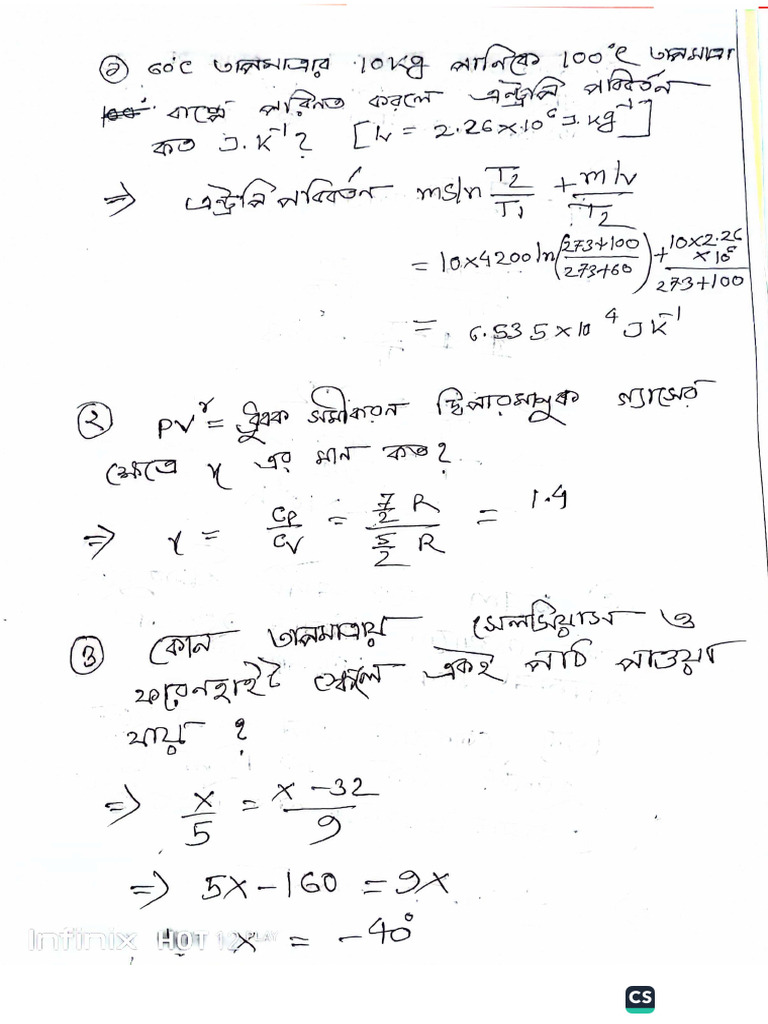 ① 60°C তাপমাত্রার 10kg পানিকে 100°C তাপমাত্রা
বাষ্পে পরিনত করলে এন্ট্রপি পরিবর্তন
কত J.K⁻¹? [lv = 2.26×10⁶ J.kg⁻¹]
⇒ এন্ট্রপি পরিবর্তন msln T₂/T₁ + mlv/T₂
= 10×4200 ln(273+100/273+60) + 10×2.26×10⁶/273+100
= 6.535×10⁴ JK⁻¹
② PVᵞ = ধ্রুবক সমীকরন দ্বিপারমাণুক গ্যাসের
ক্ষেত্রে γ এর মান কত?
⇒ γ = Cp/Cv = 7/2 R / 5/2 R = 1.4
③ কোন তাপমাত্রায় সেলসিয়াস ও
ফারেনহাইট স্কেলে একই পাঠ পাওয়া
যায়?
⇒ x/5 = x-32/9
⇒ 5x-160 = 9x
x = -40°
Infinix HOT 12 PLAY
CS